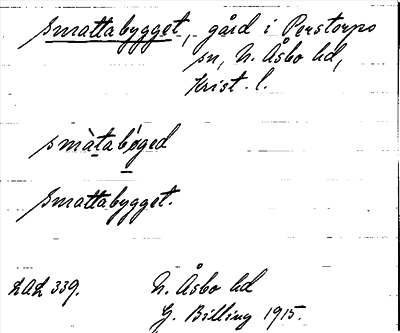 Smattabygget, gård i Perstorps
sn, N. Åsbo hd,
Krist. l.
smàtabýged
Smattabygget.
LAL 339. N. Åsbo hd
G. Billing 1915.